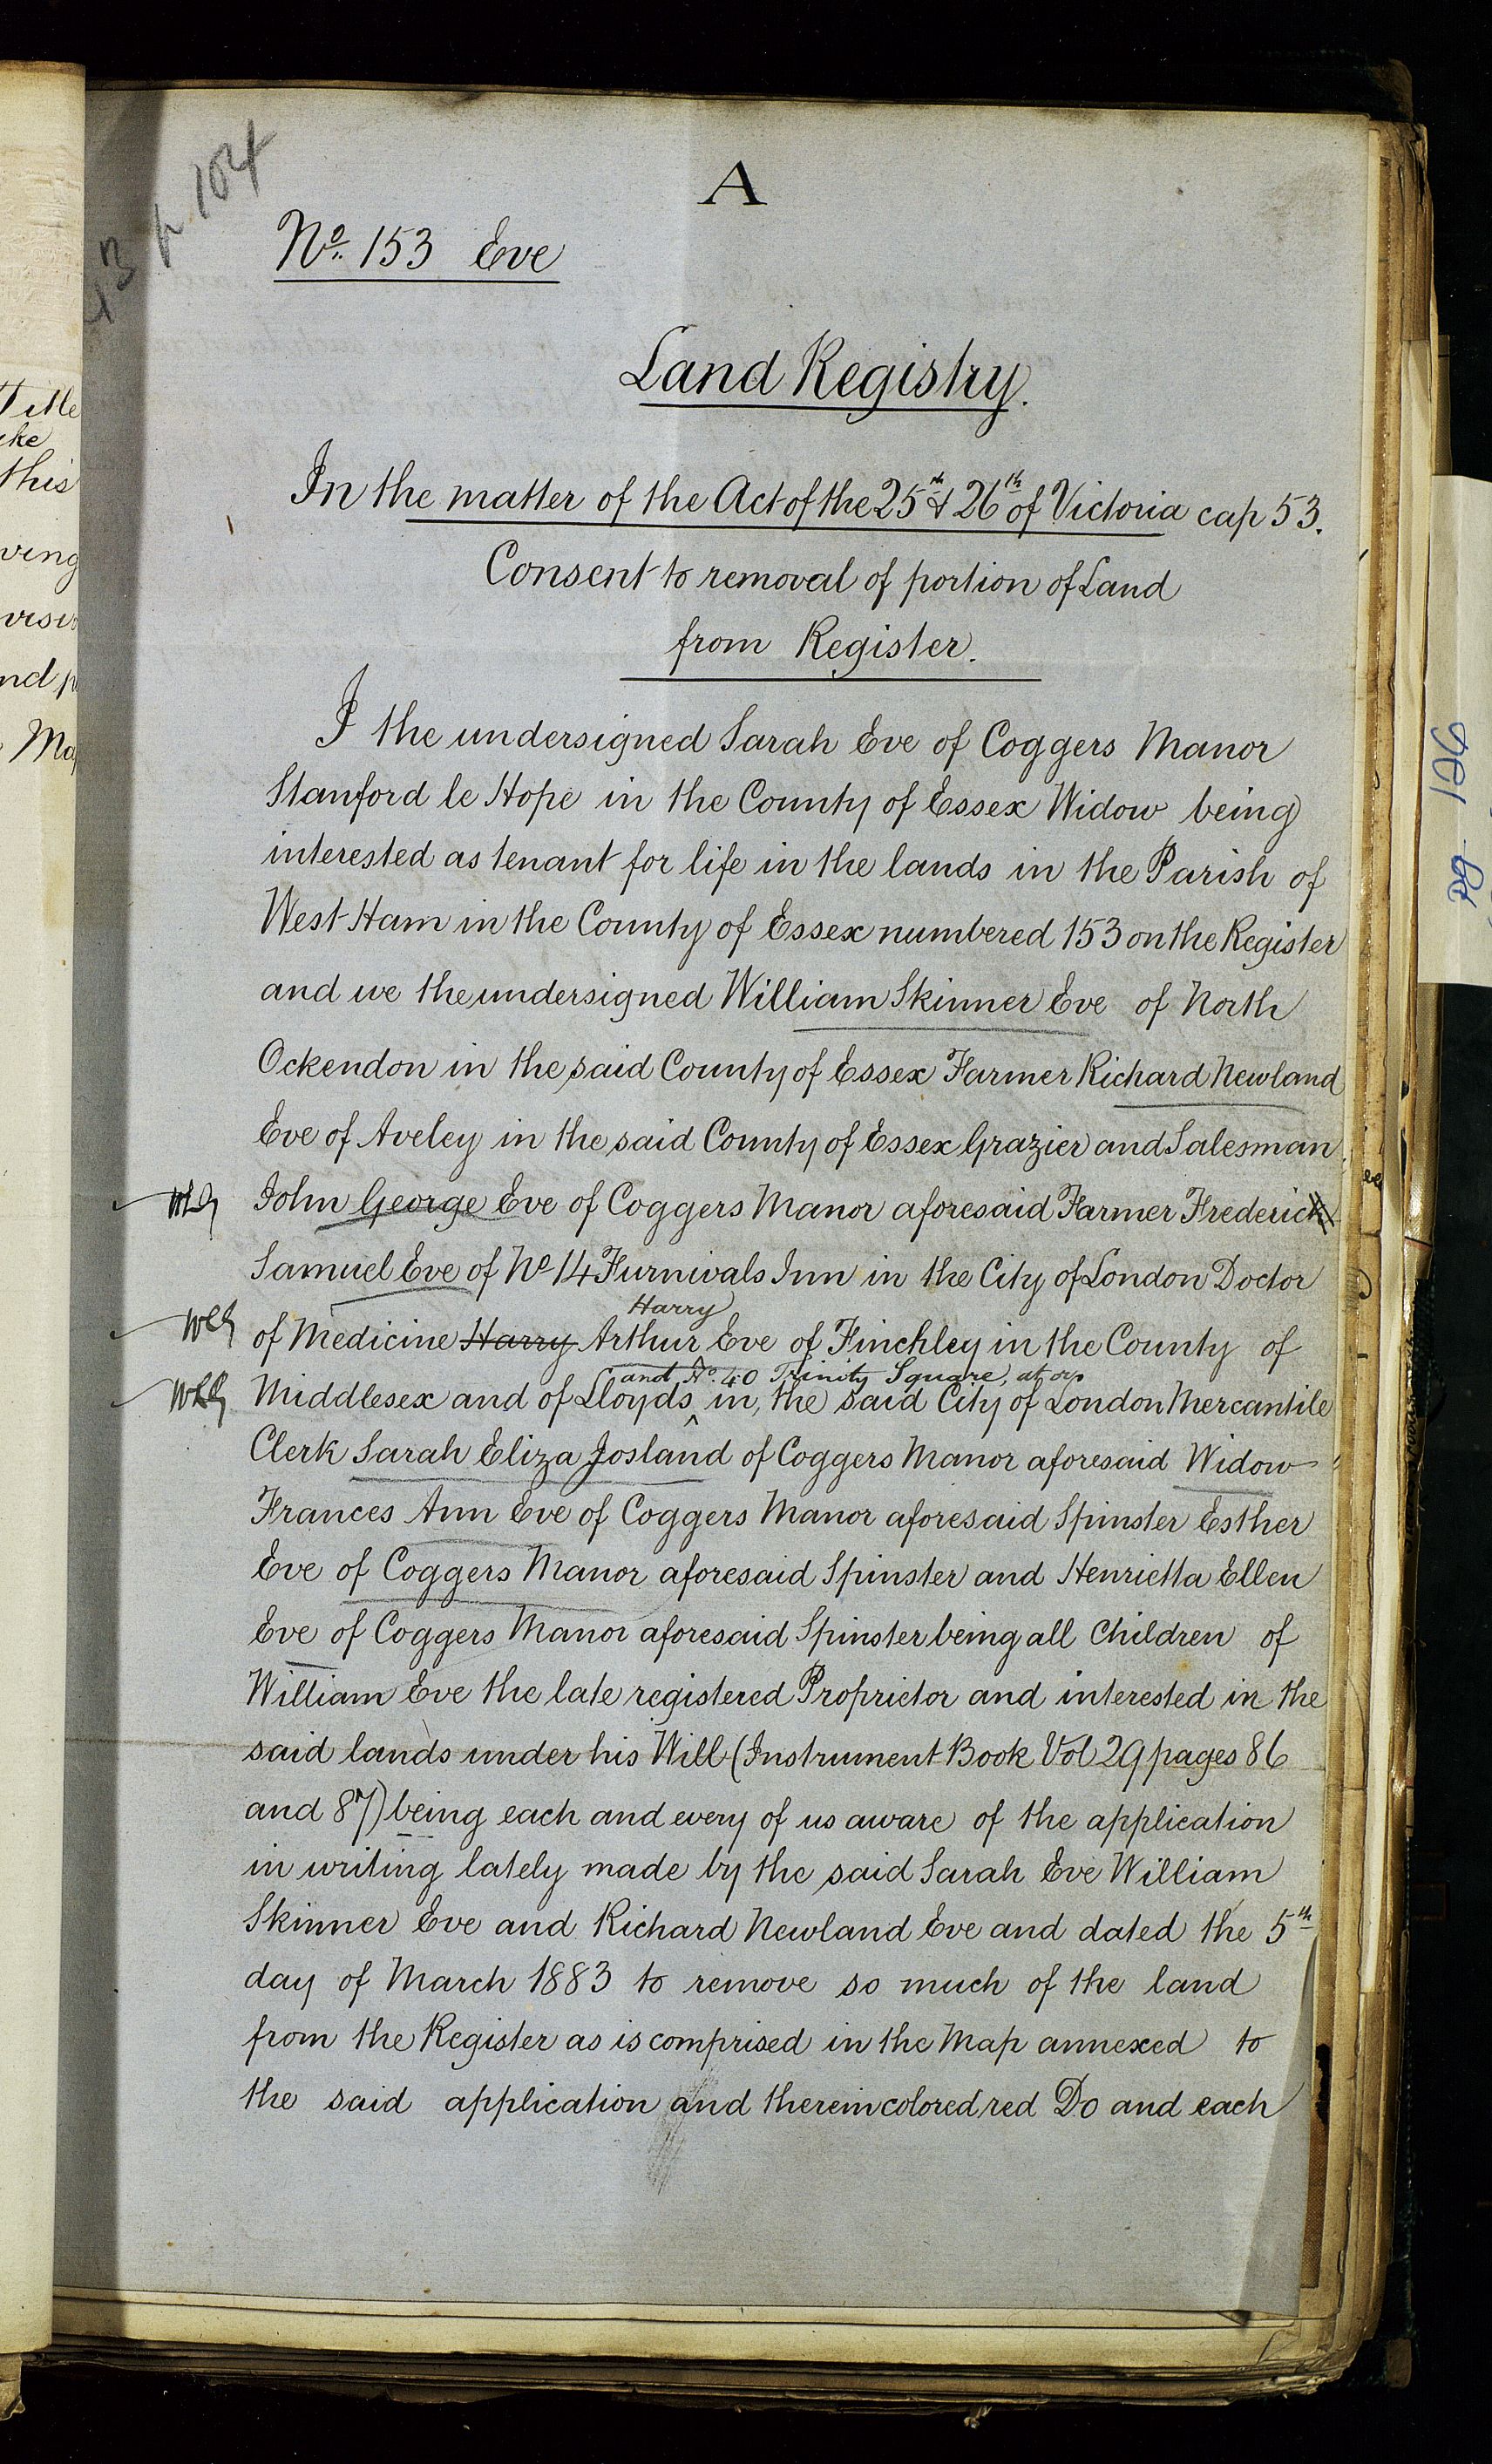 A
Nº. 153 Eve
Land Registry.
In the matter of the Act of the 25th & 26th of Victoria cap 53.
Consent to removal of portion of Land
from Register.
I the undersigned Sarah Eve of Coggers Manor
Stanford le Hope in the County of Essex Widow being
interested as tenant for life in the lands in the Parish of
West Ham in the County of Essex numbered 153 on the Register
and we the undersigned William Skinner Eve of North
Ockendon in the said County of Essex Farmer Richard Newland
Eve of Aveley in the said County of Essex Grazier and Salesman
John George Eve of Coggers Manor aforesaid Farmer Frederick
Samuel Eve of No 14 Furnivals Inn in the City of London Doctor
Harry
of Medicine Harry Arthur Eve of Finchley in the County of
and No. 40 Trinity Square, at
Middlesex and of Lloyds in, the said City of London Mercantile
Clerk Sarah Eliza Josland of Coggers Manor aforesaid Widow
Frances Ann Eve of Coggers Manor aforesaid Spinster Esther
Eve of Coggers Manor aforesaid Spinster and Henrietta Ellen
Eve of Coggers Manor aforesaid Spinster being all Children of
William Eve the late registered Proprietor and interested in the
said lands under his Will (Instrument Book Vol 29 pages 86
and 87) being each and every of us aware of the application
in writing lately made by the said Sarah Eve William
Skinner Eve and Richard Newland Eve and dated the 5th
day of March 1883 to remove so much of the land
from the Register as is comprised in the Map annexed to
the said application and therein colored red Do and each
Title
this
ving
126